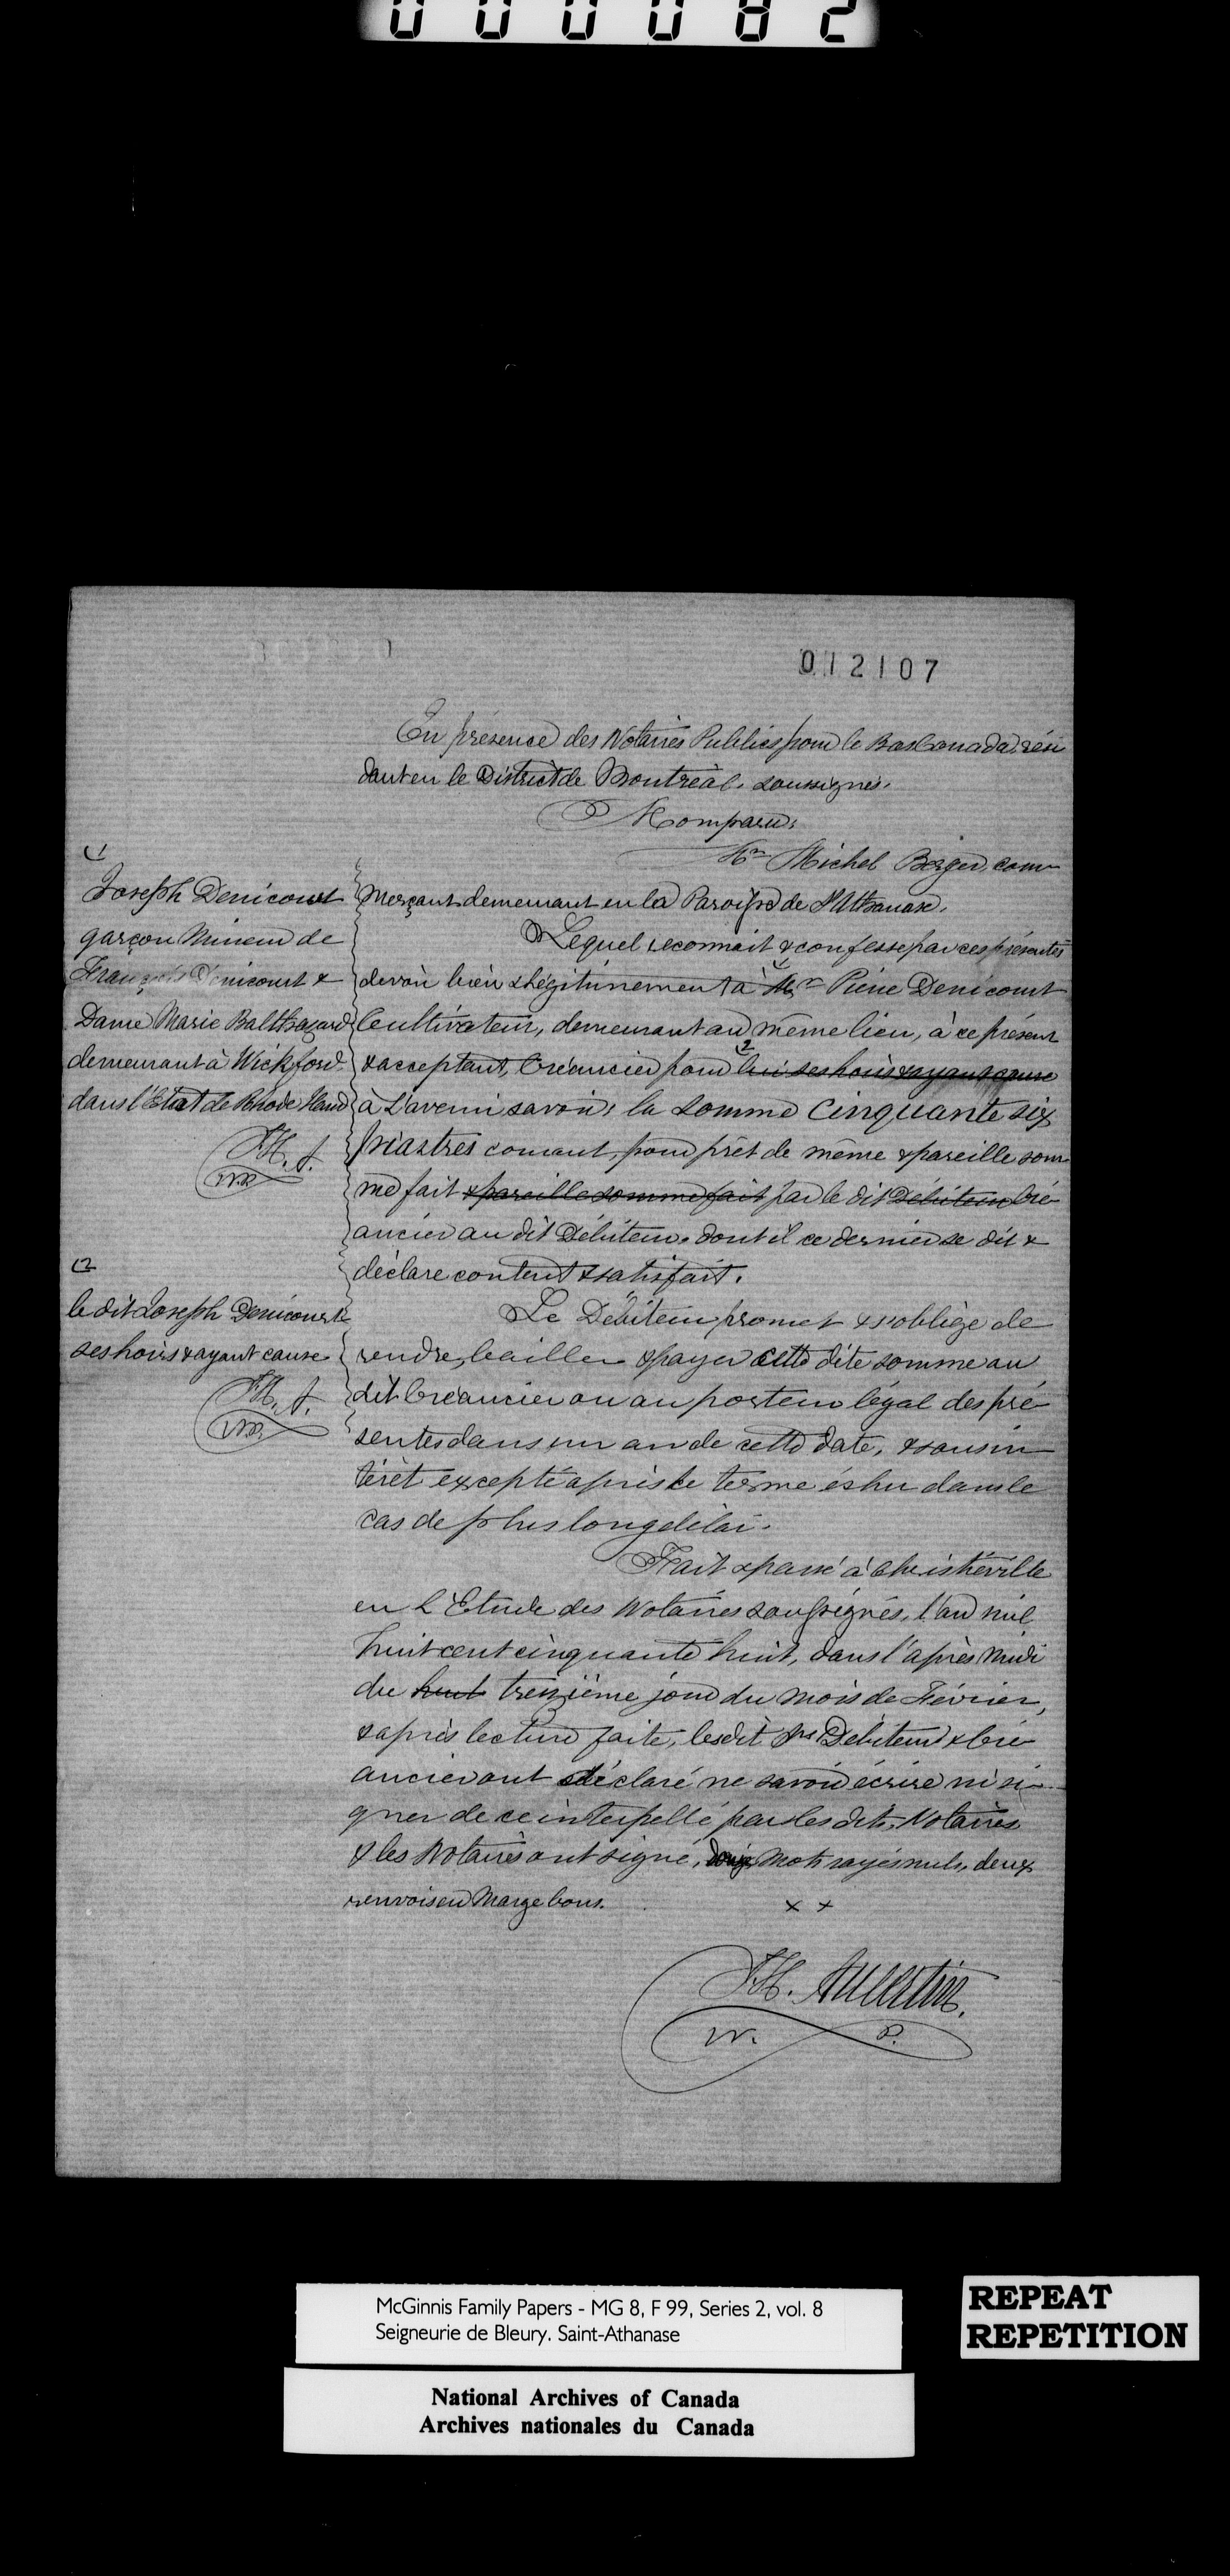 000082
012107
En présence des Notaires Publics pour le Bas Canada, rési
dant en le District de Montréal, soussignés.
Comparu:
Mr Michel Berger, com
merçant demeurant en la Paroisse de St Athanase.
Lequel reconnait & confesse par ces présentes
devoir bien & légitimement à (1 Mr Pierre Denicourt
Cultivateur, demeurant au même lieu, à ce présent
& acceptant, Créancier pour (2 lui ses hoirs & ayant cause
à l'avenir savoir: la somme Cinquante six
piastres courant, pour prêt de même & pareille som
me fait & pareille somme fait par le dit Débiteur Cré
ancier au dit Débiteur dont il ce dernier se dit &
déclare content & satisfait.
Le Débiteur promet & s'oblige de
rendre, bailler & payer cette dite somme au
dit Créancier ou au porteur légal des pré
sentes dans un an de cette date, & sans in
térêt excepté après le terme échu dans le
cas de plus long délai.
Fait & passé à Christieville
en l'Etude des Notaires soussignés, l'an mil
huit cent cinquante huit, dans l'après midi
du huit treizième jour du mois de Février,
& après lecture faite, les dit Débiteur & Cré
ancier ont déclaré ne savoir écrire ni si
gner de ce interpellé par les dits Notaires
& les Notaires ont signé, mots rayés nuls, deux
renvois en Marge bons.
x x
N. P.
(1
Joseph Denicourt
garçon Mineur de
François Denicourt &
Dame Marie Balthazard
demeurant à Wickford
dans l'Etat de Rhode Iland
H. A.
NP.
(2
le dit Joseph Denicourt
ses hoirs & ayant cause
H. A.
NP.
McGinnis Family Papers - MG 8, F 99, Series 2, vol. 8
Seigneurie de Bleury. Saint-Athanase
REPEAT
REPETITION
National Archives of Canada
Archives nationales du Canada